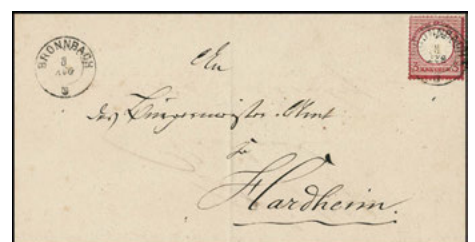 BRONNBACH
8
AUG
An
das Bürgermeister-Amt
zu
Hardheim.